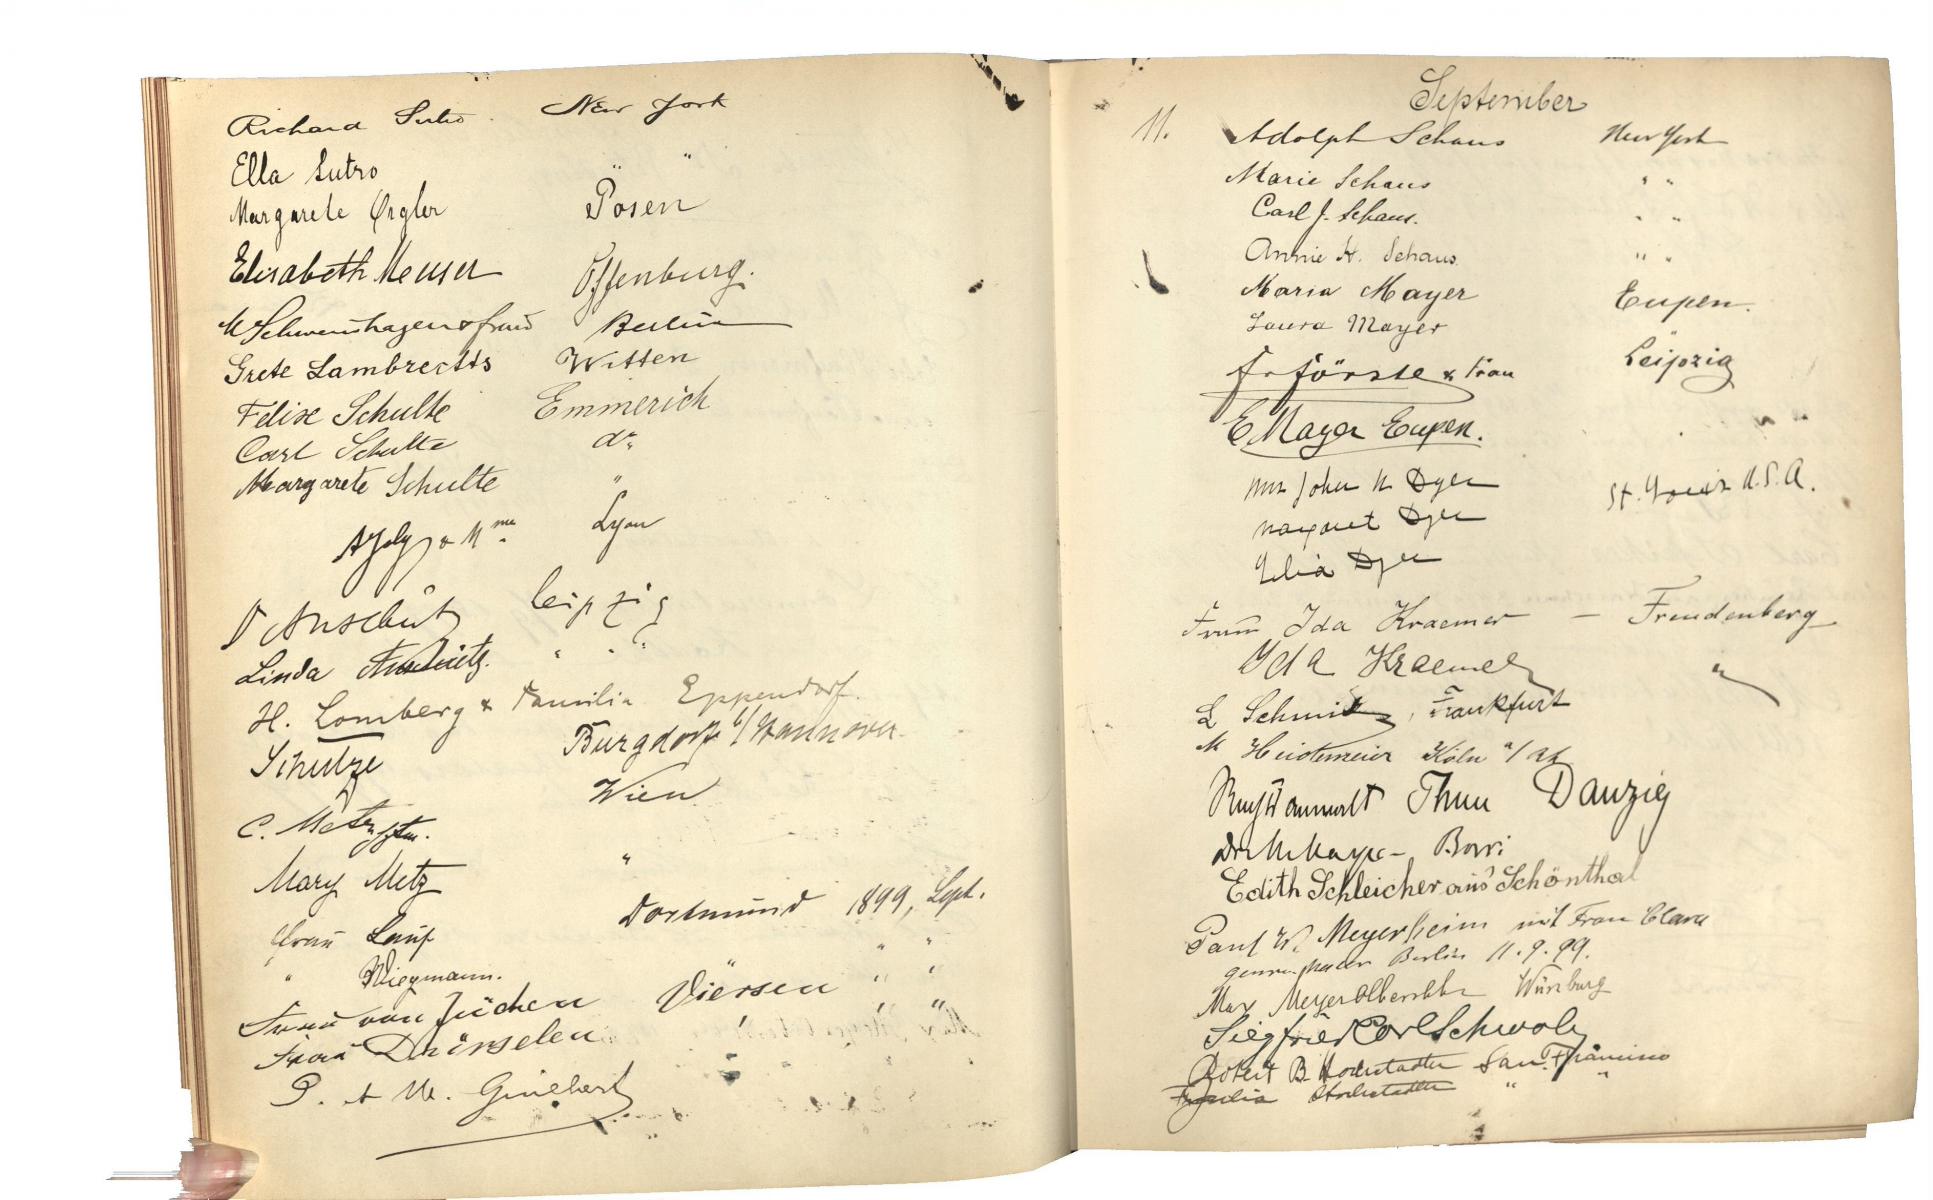 Richard Sutro. New York
Ella Sutro " "
Margarete Orgler Posen
Elisabeth Meuser Offenburg.
Berlin
Grete Lambrechts Witten
Felix Schulte Emmerich
Carl Schulte do
Margarete Schulte "
& Mme Lyon
Anschütz Leipzig
Linda Anschütz. " " "
H. Lomberg & Familie Eppendorf.
Schulze Burgdorf b/Hannover.
C. Metz Wien
Mary Metz "
Frau Lauf Dortmund 1899, Sept.
" Wiegmann. " "
Frau van Jüchen Viersen " "
Frau
P. et M. Guichert
September
11. Adolph Schaus New York
Marie Schaus " "
Carl J. Schaus. " "
Annie H. Schaus. " "
Maria Mayer Eupen.
Laura Mayer "
Fr Förste & Frau Leipzig
E Mayer Eupen.
Mrs John N Dyer St. Louis U.S.A.
Margaret Dyer
Dyer
Frau Ida Kraemer — Freudenberg
Ida Kraemer "
L Schmitz, Frankfurt
M Köln a/Rh
Rechtsanwalt Thun Danzig
Edith Schleicher aus Schönthal
Paul W. Meyerheim mit Frau Clara
Genremaler Berlin 11.9.99.
Max Würzburg
Siegfried Carl
Robert B. Hochstadter San Francisco
Hochstadter " "